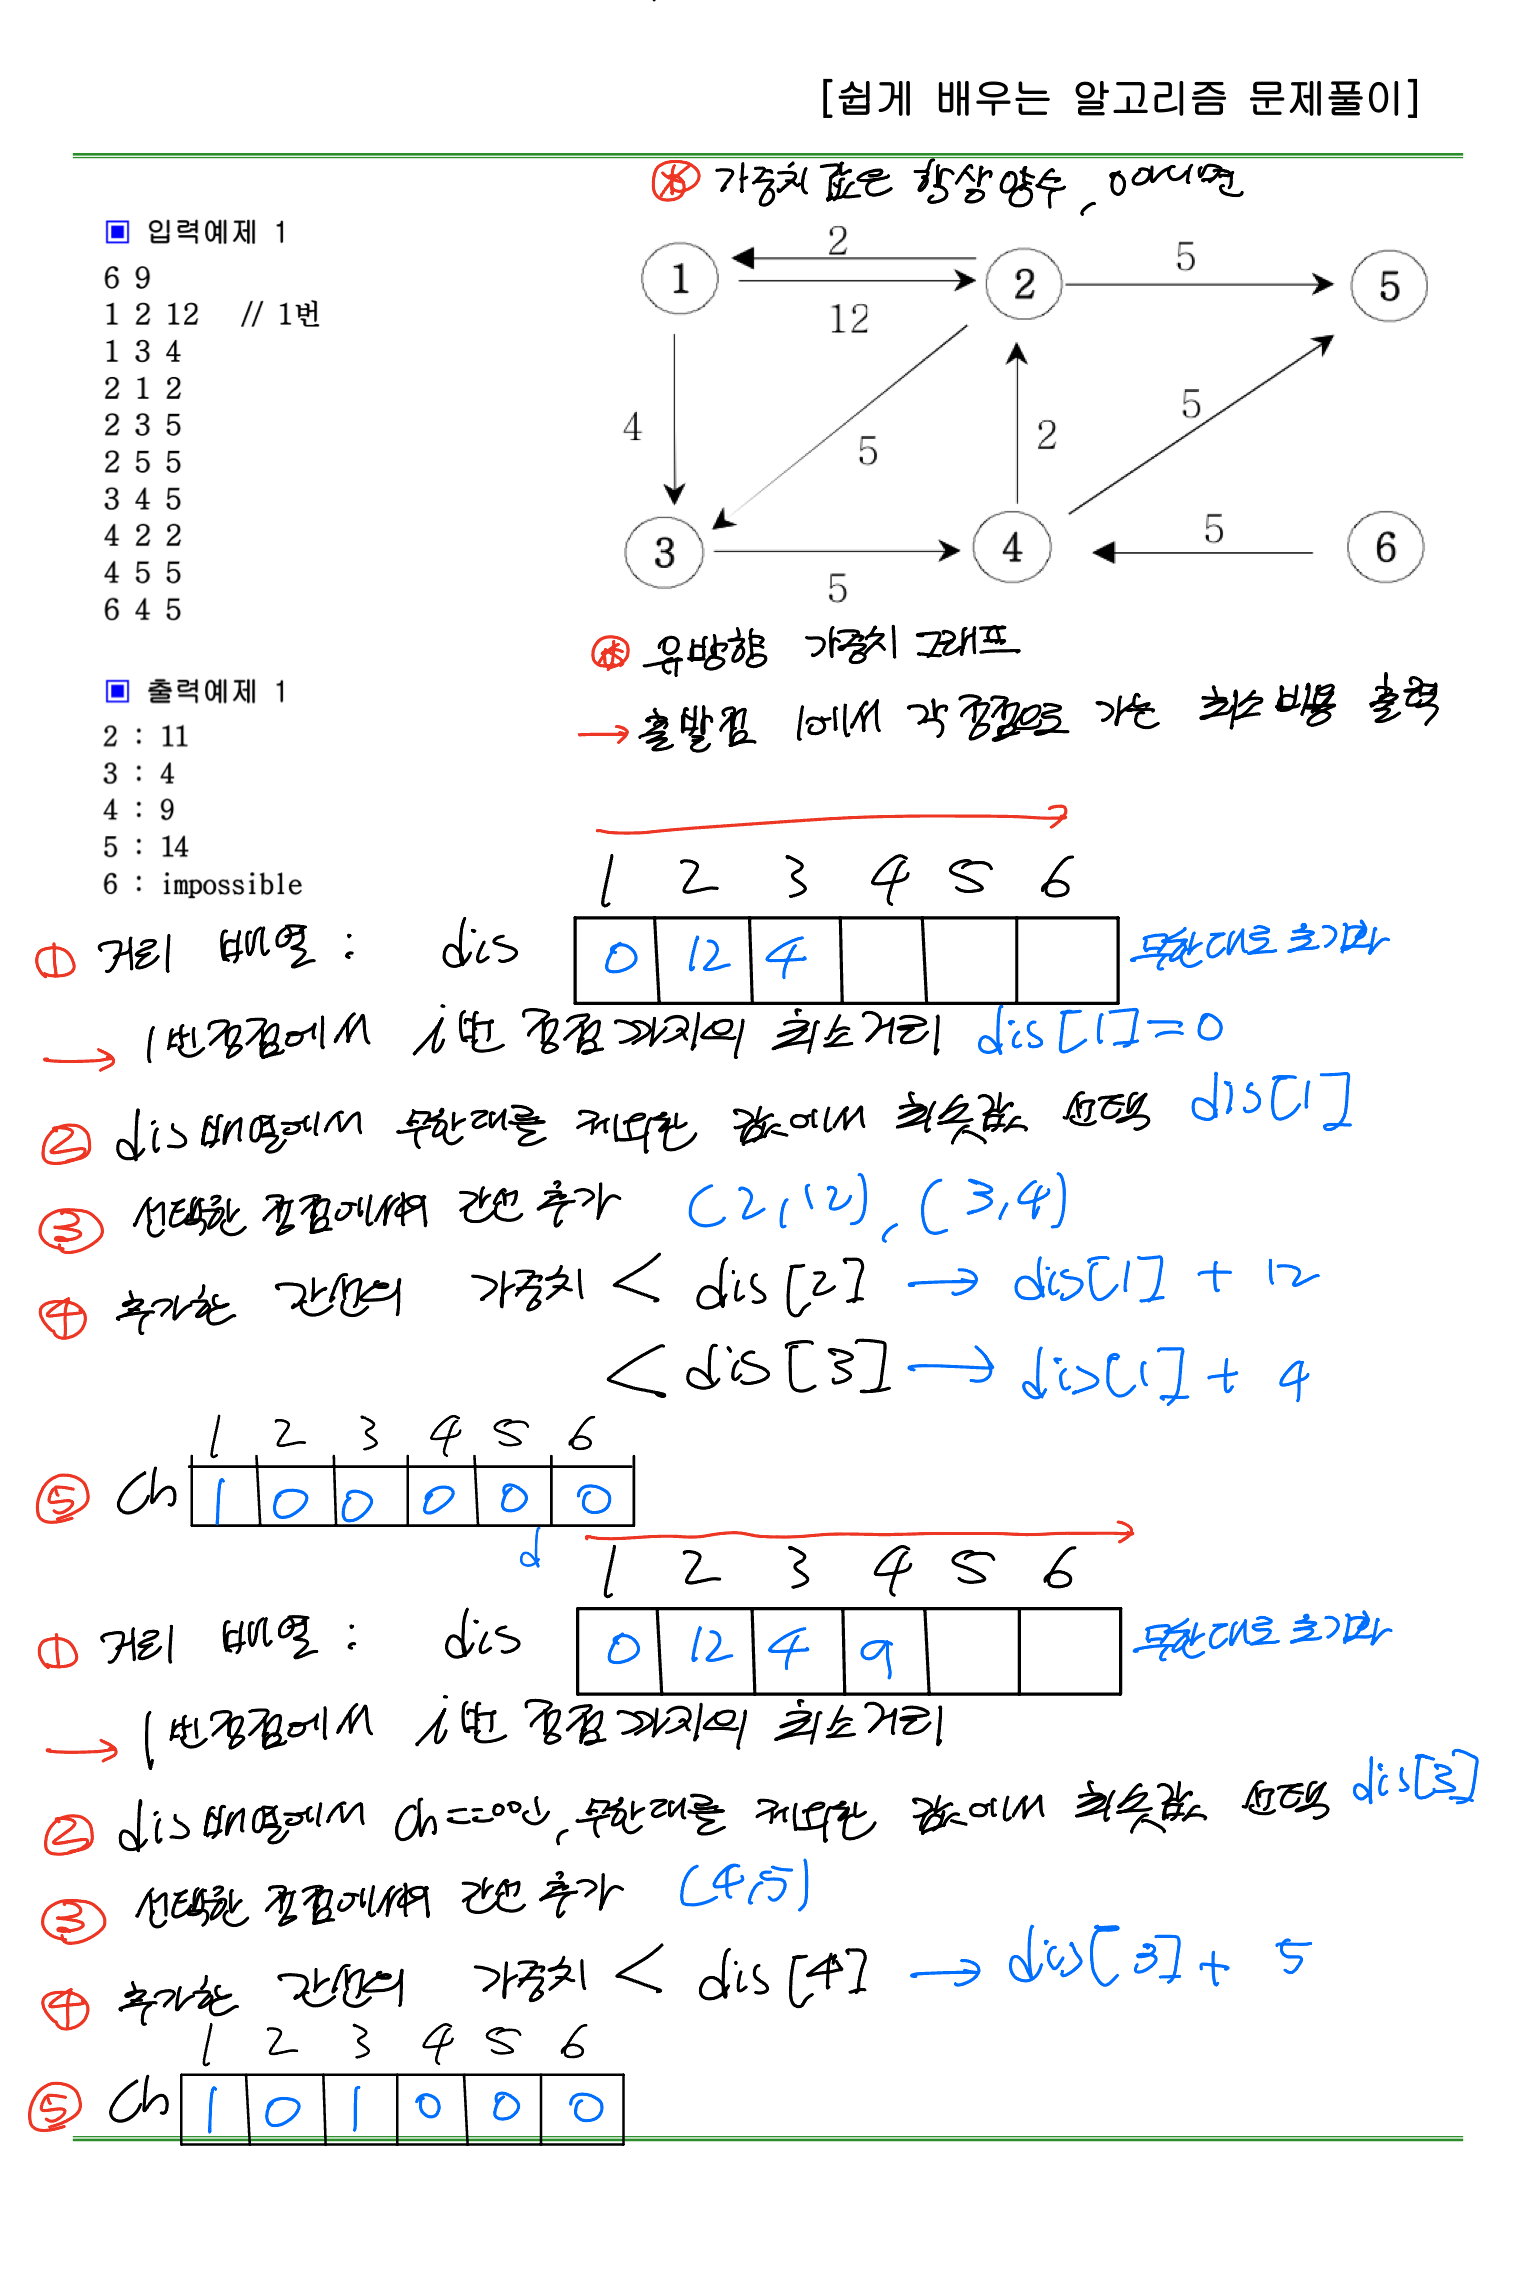 [쉽게 배우는 알고리즘 문제풀이]
가중치 값은 항상 양수, 0 아니면
▣ 입력예제 1
6 9
1 2 12 // 1번
1 3 4
2 1 2
2 3 5
2 5 5
3 4 5
4 2 2
4 5 5
6 4 5
1 2 2 5 5
12
4 5 2 5
3 5 4 5 6
유방향 가중치 그래프
→ 출발점 1에서 각 정점으로 가는 최소 비용 출력
▣ 출력예제 1
2 : 11
3 : 4
4 : 9
5 : 14
6 : impossible
1 2 3 4 5 6
① 거리 배열 : dis 0 12 4 무한대로 초기화
→ 1번 정점에서 i번 정점까지의 최소거리 dis[1]=0
② dis배열에서 무한대를 제외한 값에서 최솟값 선택 dis[1]
③ 선택한 정점에서의 간선 추가 (2,12), (3,4)
④ 추가한 간선의 가중치 < dis[2] → dis[1] + 12
< dis[3] → dis[1] + 4
1 2 3 4 5 6
⑤ ch 1 0 0 0 0 0
d
1 2 3 4 5 6
① 거리 배열 : dis 0 12 4 9 무한대로 초기화
→ 1번 정점에서 i번 정점까지의 최소거리
② dis배열에서 ch==0인, 무한대를 제외한 값에서 최솟값 선택 dis[3]
③ 선택한 정점에서의 간선 추가 (4,5)
④ 추가한 간선의 가중치 < dis[4] → dis[3] + 5
1 2 3 4 5 6
⑤ ch 1 0 1 0 0 0